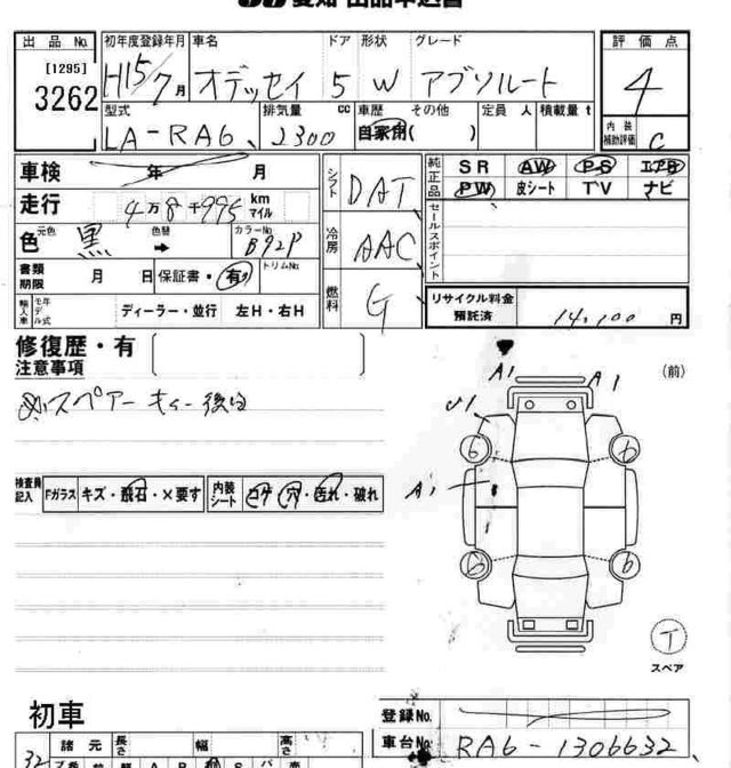 愛知 出品申込書
出品 No. 初年度登録年月 車名 ドア 形状 グレード 評価点
[1295]
3262 H15/7月 オデッセイ 5 W アブソルート 4
型式 排気量 cc 車歴 その他 定員 人 積載量 t 内装補助評価
LA-RA6 2300 自家用( ) C
車検 年 月 シフト DAT 純正品 SR AW PS エアB
PW 皮シート TV ナビ
走行 4万8千995 km マイル セールスポイント
色 元色 黒 色替 ➡ カラーNo. B92P 冷房 AAC
書類期限 月 日 保証書・有 トリムNo.
輸入車 モデル年式 ディーラー・並行 左H・右H 燃料 G リサイクル料金預託済 14,100 円
修復歴・有
注意事項
スペアーキー後日
(前)
A1 A1
A1
検査員記入 Fガラス キズ・飛石・×要す 内装シート コゲ・穴・汚れ・破れ
T
スペア
初車
登録No.
車台No. RA6-1306632
諸元 長さ 幅 高さ
32